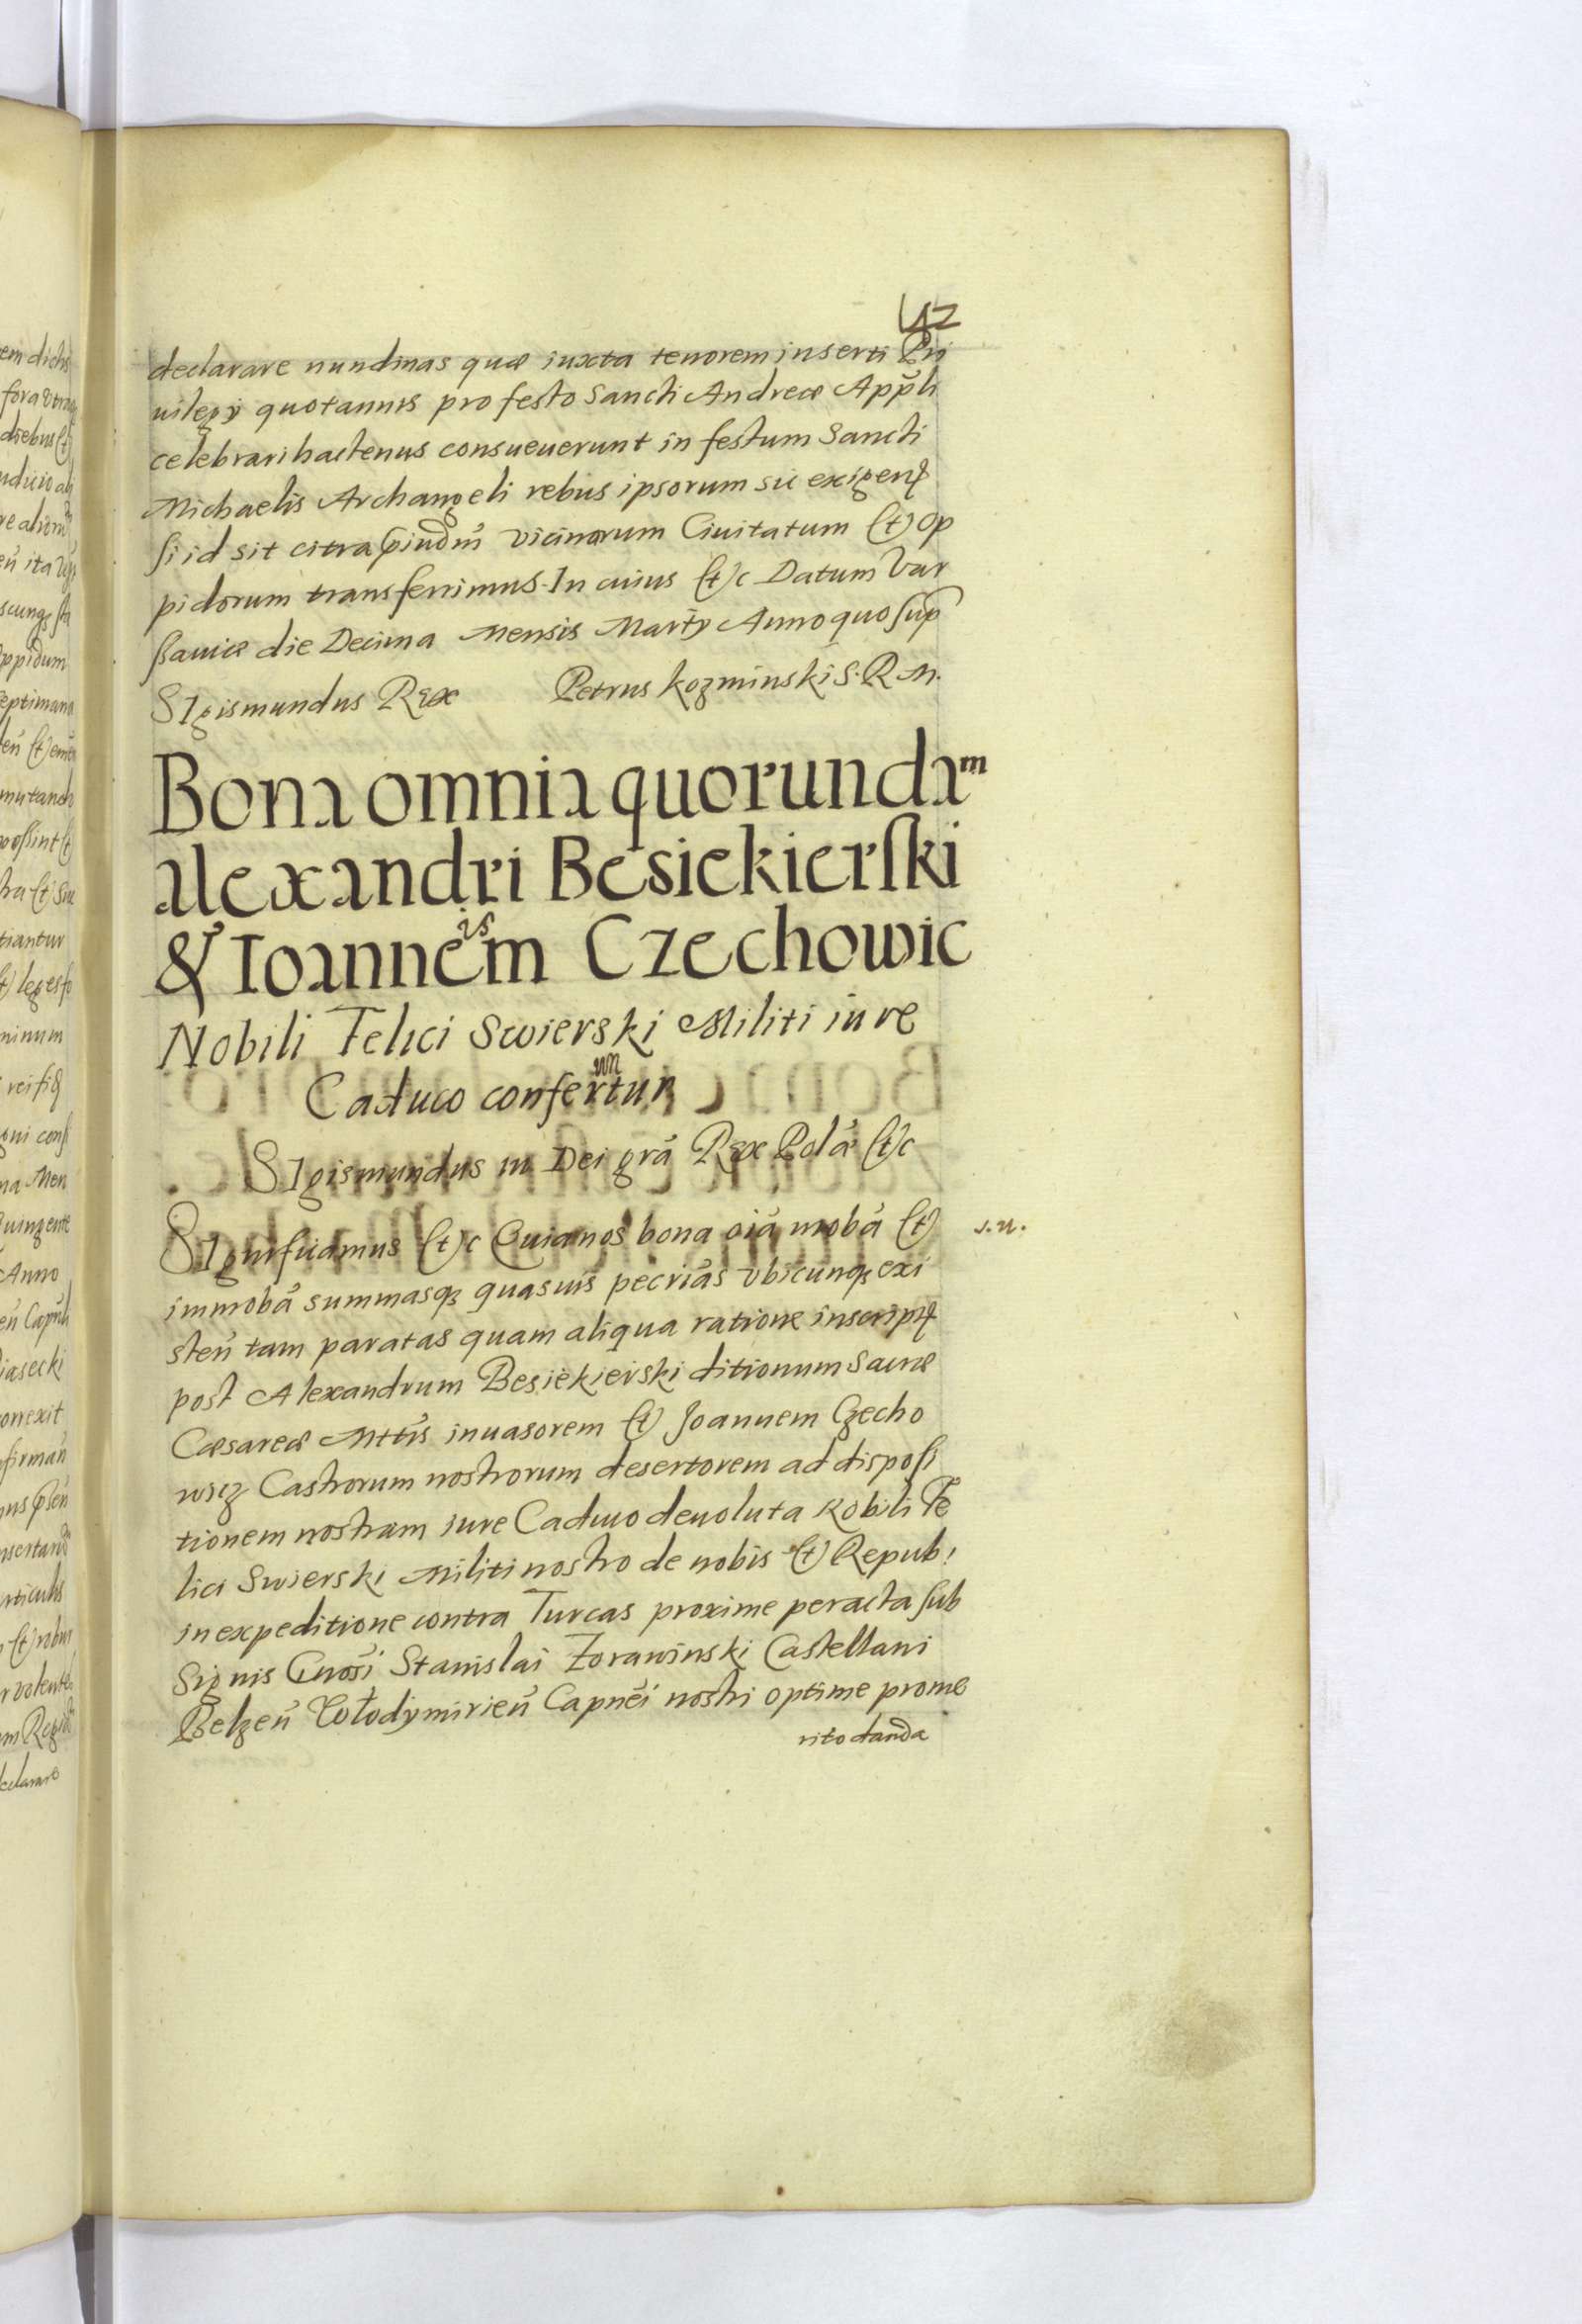 42
declarare nundinas quæ iuxta tenorem inserti Pri
uilegÿ quotannis pro festo Sancti Andreæ Appl̃i
celebrari hactenus consueuerunt in festum Sancti
Michaelis Archangeli rebus ipsorum sic exigenꝭ
si id sit citra p̃iud̃m̃ vicinorum Ciuitatum et Op
pidorum transferrimus. In cuius etc Datum Var
ßauiæ die Decima Mensis Martÿ Anno quo sup
SIgismundus Rex Petrus Kozminski S. R. M.
Bona omnia quorundam
alexandri Besiekierski
is
& Ioannem Czechowic
Nobili Felici Swierski Militi iure
un
Caduco confertur
SIgismundus III Dei grã Rex Polæ̃ etc
SIgnificamus etc Quia nos bona oĩa mobã et s.n.
immobã summasqꝫ quasuis pecr̃ias vbicunqꝫ exi
steñ tam paratas quam aliqua ratione inscripꝭ
post Alexandrum Besiekierski ditionum Sacræ
Cæsareæ Mtt̃is inuasorem et Joannem Czecho
wicz Castrorum nostrorum desertorem ad disposi
tionem nostram iure Caduco deuoluta Nobili Fe
lici Swierski Militi nostro de nobis et Repub:
in expeditione contra Turcas proxime peracta sub
Signis Gnosi Stanislai Zorawinski Castellani
Belzeñ Włodymirieñ Capnei nostri optime prome
rito danda
em dictis
fora
diebus et
ita
oppidum
septimana
mutand
possint et
tiantur
et leges fo
minum
Anno
iasecki
correxit
declarare